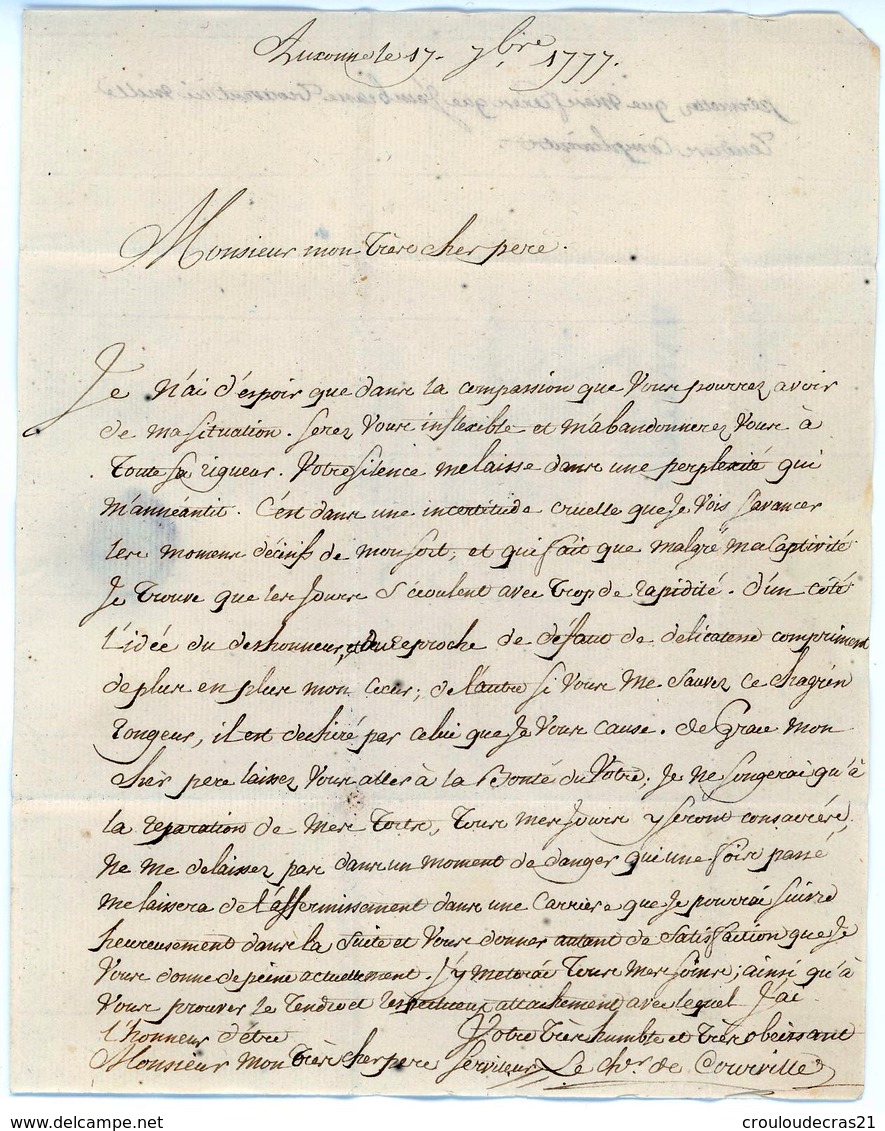 Auxonne le 17. 7bre 1777.
Monsieur mon très cher pere.
Je n'ai d'espoir que dans la compassion que vous pourrez avoir
de ma situation. serez vous inflexible et m'abandonnerez vous à
toute sa rigueur. Votre silence me laisse dans une perplexité qui
m'annéantit. C'est dans une incertitude cruelle que je vois s'avancer
les momens décisifs de mon sort, et qui fait que malgré ma captivité
je trouve que les jours s'écoulent avec trop de rapidité. d'un coté
l'idée du deshonneur, et du reproche de défaut de délicatesse compriment
de plus en plus mon coeur; de l'autre si vous me sauvez ce chagrin
rongeur, il est dechiré par celui que je vous cause. de grace mon
cher pere laissez vous aller à la bonté du votre; je ne songerai qu'à
la reparation de mes torts, tous mes jours y seront consacrés.
Ne me delaissez pas dans un moment de danger qui une fois passé
me laissera de l'affermissement dans une carriere que je pourrai suivre
heureusement dans la suite et vous donner autant de satisfaction que je
vous donne de peine actuellement. j'y metterai tous mes soins; ainsi qu'à
vous prouver le tendre et respectueux attachement avec lequel j'ai
l'honneur d'être Votre très humble et très obeissant
Monsieur mon très cher pere serviteur Le chr. de Courville
DELCAMPE.NET
crouloudecras21